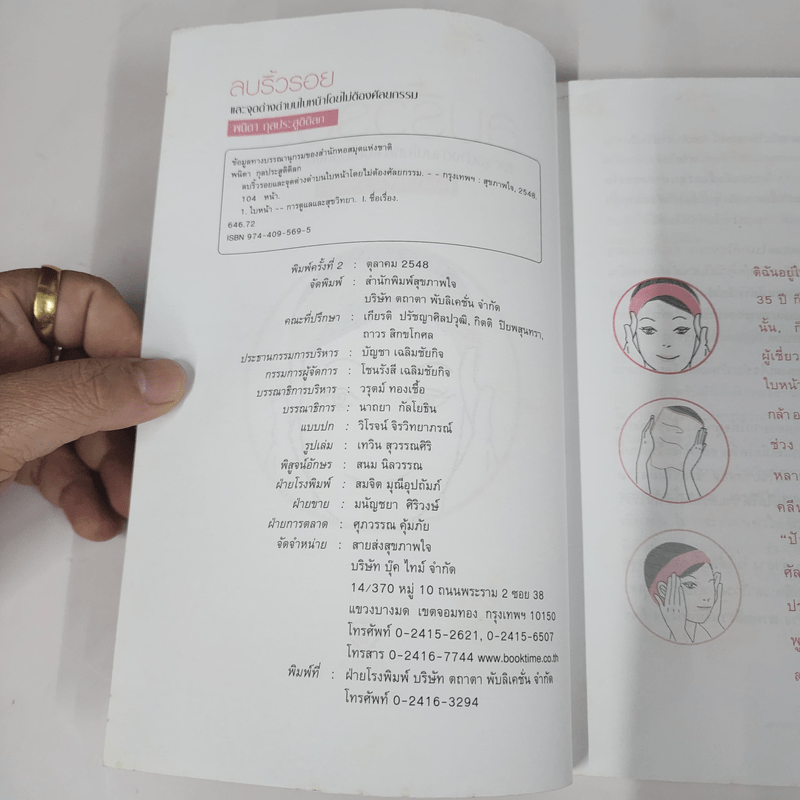 ลบริ้วรอย
และจุดด่างดำบนใบหน้าโดยไม่ต้องศัลยกรรม
พนิดา กุลประสูติดิลก
ข้อมูลทางบรรณานุกรมของสำนักหอสมุดแห่งชาติ
พนิดา กุลประสูติดิลก
ลบริ้วรอยและจุดด่างดำบนใบหน้าโดยไม่ต้องศัลยกรรม. - - กรุงเทพฯ : สุขภาพใจ, 2548.
104 หน้า.
1. ใบหน้า -- การดูแลและสุขวิทยา. I. ชื่อเรื่อง.
646.72
ISBN 974-409-569-5
พิมพ์ครั้งที่ 2 : ตุลาคม 2548
จัดพิมพ์ : สำนักพิมพ์สุขภาพใจ
บริษัท ตถาตา พับลิเคชั่น จำกัด
คณะที่ปรึกษา : เกียรติ ปรัชญาศิลปวุฒิ, กิตติ ปิยพสุนทรา,
ถาวร สิกขโกศล
ประธานกรรมการบริหาร : บัญชา เฉลิมชัยกิจ
กรรมการผู้จัดการ : โชนรังสี เฉลิมชัยกิจ
บรรณาธิการบริหาร : วรุตม์ ทองเชื้อ
บรรณาธิการ : นาถยา กัลโยธิน
แบบปก : วิโรจน์ จิรวิทยาภรณ์
รูปเล่ม : เทวิน สุวรรณศิริ
พิสูจน์อักษร : สนม นิลวรรณ
ฝ่ายโรงพิมพ์ : สมจิต มุณีอุปถัมภ์
ฝ่ายขาย : มนัญชยา ศิริวงษ์
ฝ่ายการตลาด : ศุภวรรณ คุ้มภัย
จัดจำหน่าย : สายส่งสุขภาพใจ
บริษัท บุ๊ค ไทม์ จำกัด
14/370 หมู่ 10 ถนนพระราม 2 ซอย 38
แขวงบางมด เขตจอมทอง กรุงเทพฯ 10150
โทรศัพท์ 0-2415-2621, 0-2415-6507
โทรสาร 0-2416-7744 www.booktime.co.th
พิมพ์ที่ : ฝ่ายโรงพิมพ์ บริษัท ตถาตา พับลิเคชั่น จำกัด
โทรศัพท์ 0-2416-3294
ดิฉันอยู่ใ
35 ปี ก็
นั้น, ก
ผู้เชี่ยว
ใบหน้
กล้าอ
ช่วง
หลา
คลีน
"ปั
ศัล
ปร
พู
ส